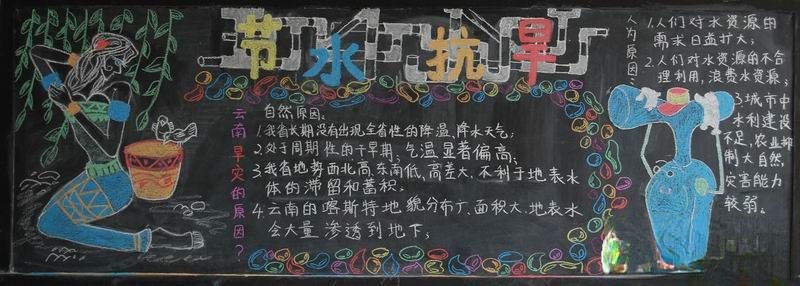 节水抗旱
云南旱灾的原因？
自然原因：
1.我省长期没有出现全省性的降温、降水天气；
2.处于周期性的干旱期，气温显著偏高；
3.我省地势西北高，东南低，高差大，不利于地表水
体的滞留和蓄积。
4.云南的喀斯特地貌分布广、面积大、地表水
会大量渗透到地下；
人为原因：
1.人们对水资源的
需求日益扩大；
2.人们对水资源的不合
理利用，浪费水资源；
3.城市中
水利建设
不足，农业抑
制大自然
灾害能力
较弱。